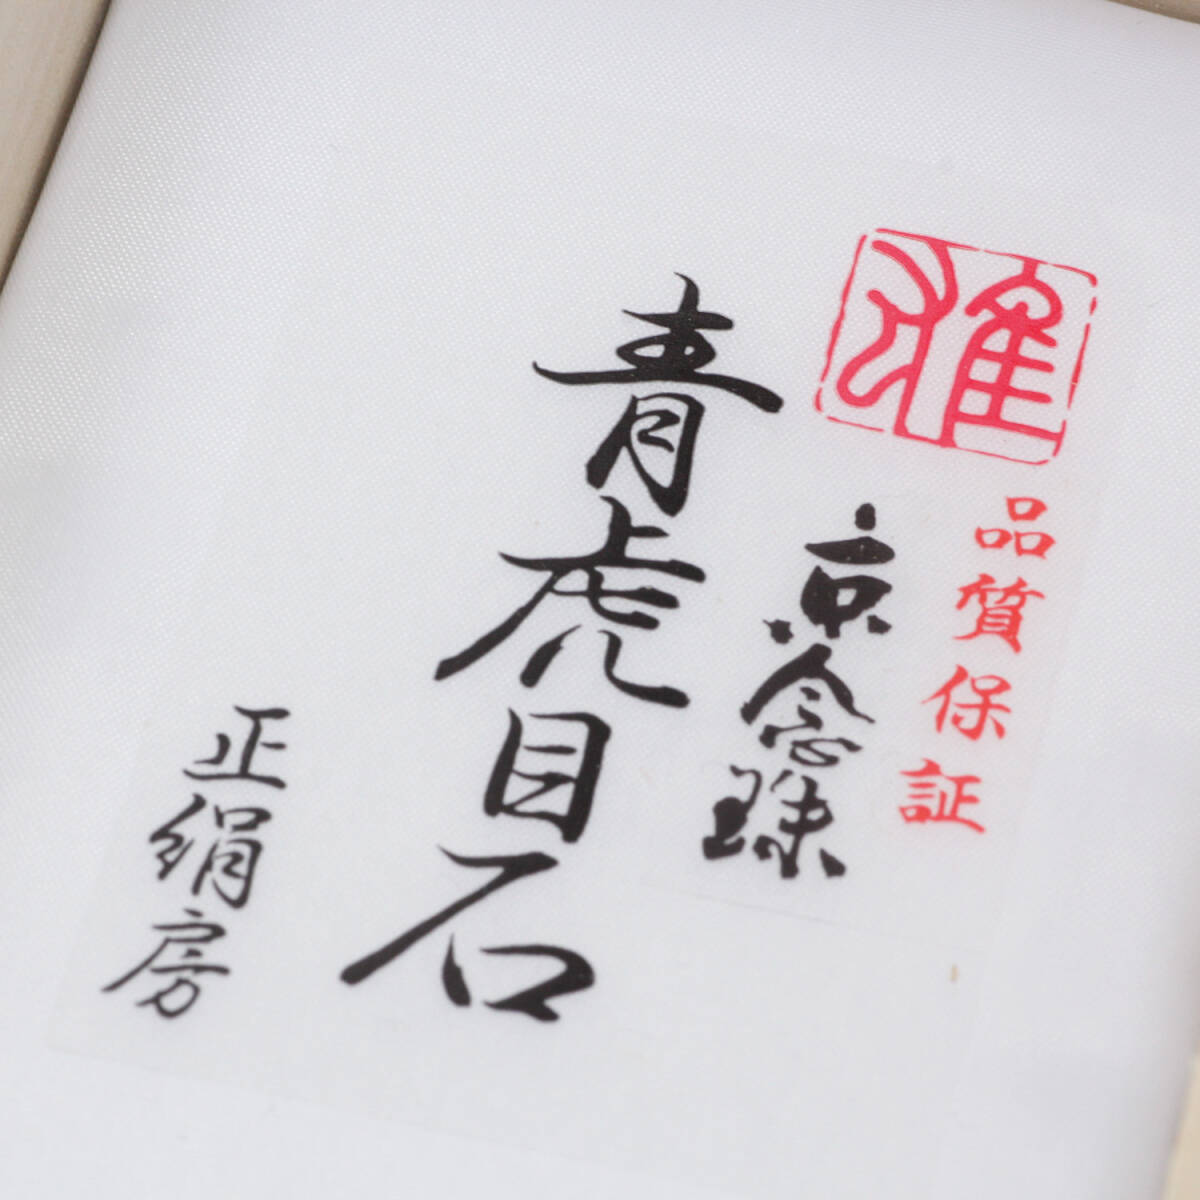 品質保証
京念珠
青虎目石
正絹房